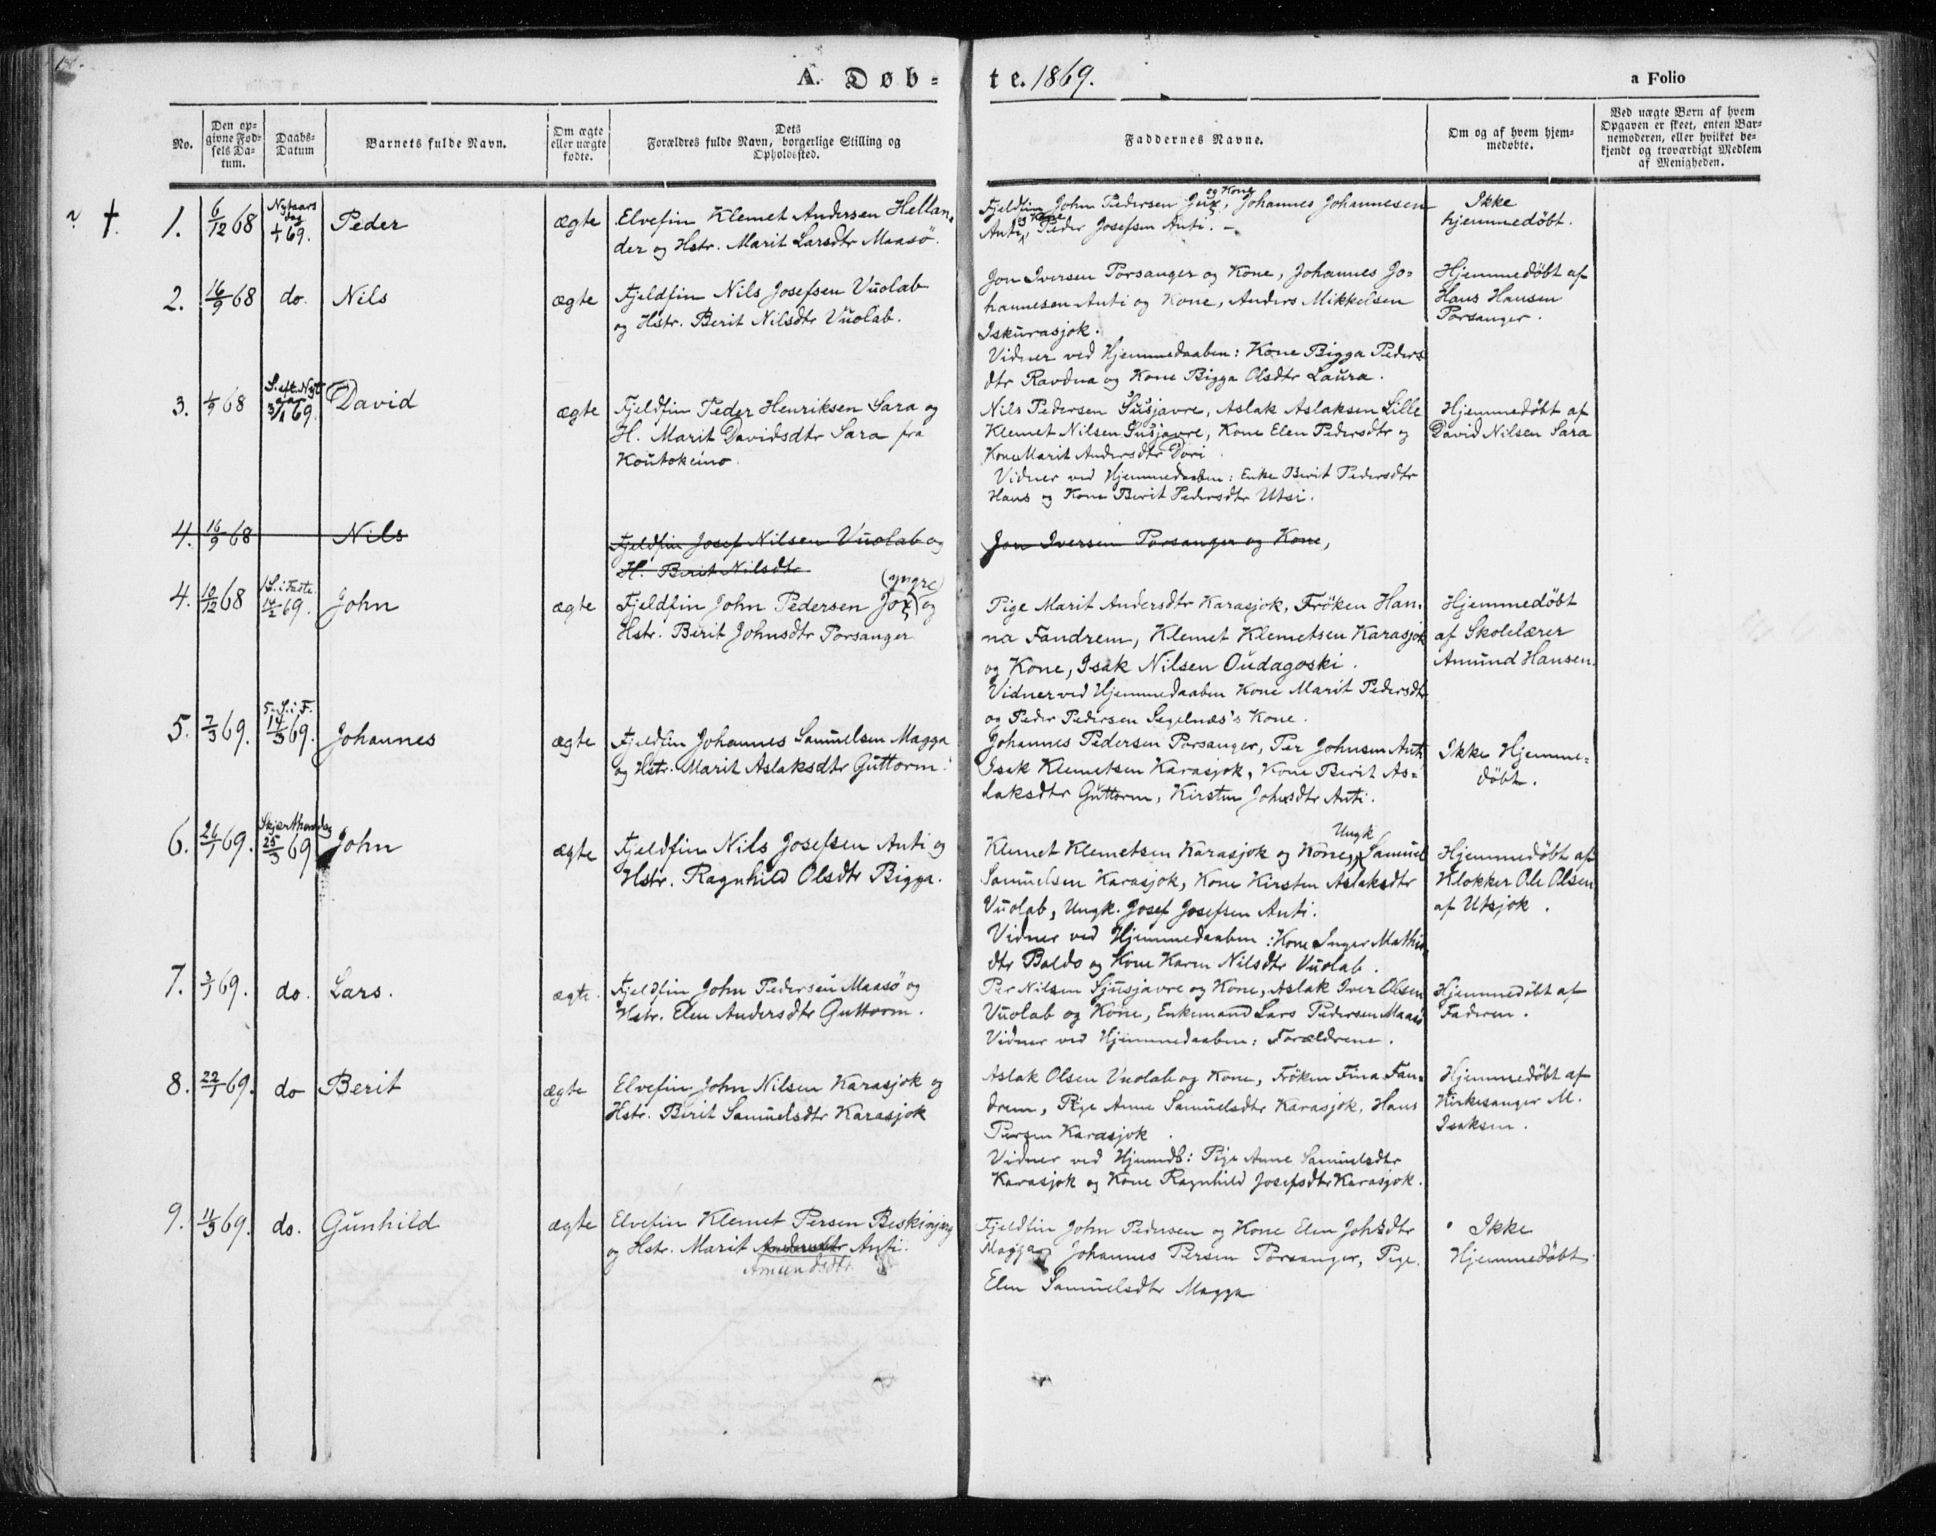 A. Døb-
te. 1869.
a Folio
No.
Den op-
givne Fød-
sels Da-
tum.
Daabs-
Datum
Barnets fulde Navn.
Om ægte
eller uægte
fødte.
Dets
Forældres fulde Navn, borgerlige Stilling og
Opholdssted.
Faddernes Navne.
Om og af hvem hjem-
medøbte.
Ved uægte Børn af hvem
Opgaven er skeet, enten Bar-
nemoderen, eller hvilket be-
kjendt og troværdigt Medlem
af Menigheden.
†. 1. 6/12 68 Nytaars
dag
69.
Peder
ægte
Elvefin Klemet Andersen Hellan-
der og Hstr. Marit Larsdtr Maasö.
og Kone
Fjeldfin John Pedersen, Johannes Johannesen
og Kone
Anti, Peder Josefsen Anti.
Ikke
hjemmedøbt.
2. 16/9 68 do. Nils
ægte
Fjeldfin Nils Josefsen Vuolab
og Hstr. Berit Nilsdtr Vuolab.
Jon Iversen Porsanger og Kone, Johannes Jo-
hannesen Anti og Kone, Anders Mikkelsen
Iskurasjok.
Vidner ved Hjemmedaaben: Kone Bigga Peders
dtr Ravdna og Kone Bigga Olsdtr Laura.
Hjemmedøbt af
Hans Hansen
Porsanger.
3. 1/9 68 S. eft. Nyt
aar
3/1 69.
David
ægte
Fjeldfin Peder Henriksen Sara og
H. Marit Davidsdtr Sara fra
Koutokeino.
Nils Pedersen Susjavre, Aslak Aslaksen Lille
Klemet Nilsen Susjavre, Kone Elen Pedersdtr og
Kone Marit Andersdtr Dori.
Vidner ved Hjemmedaaben: Enke Berit Pedersdtr
Hans og Kone Berit Pedersdtr Utsi.
Hjemmedøbt af
David Nilsen Sara
4. 16/9 68 Nils
Fjeldfin Josef Nilsen Vuolab og
H. Berit Nilsdtr
Jon Iversen Porsanger og Kone,
4. 10/12 68 1 S. i Faste
14/2 69.
John
ægte
(yngre)
Fjeldfin John Pedersen Jox og
Hstr. Berit Johnsdtr Porsanger
Pige Marit Andersdtr Karasjok, Fröken Han-
na Fandrem, Klemet Klemetsen Karasjok
og Kone, Isak Nilsen Oudagoski.
Vidner ved Hjemmedaaben Kone Marit Pedersdtr
og Peder Pedersen Segelnæs's Kone.
Hjemmedøbt
af Skolelærer
Amund Hansen.
5. 7/3 69. 5. S. i F.
14/3 69.
Johannes
ægte
Fjeldfin Johannes Samuelsen Magga
og Hstr. Marit Aslaksdtr Guttorm.
Johannes Pedersen Porsanger, Per Johnsen Anti
Isak Klemetsen Karasjok, Kone Berit As-
laksdtr Guttorm, Kirsten Johnsdtr Anti.
Ikke Hjemme-
døbt.
6. 26/1 69. Skjærthorsdag
25/3 69
John
ægte
Fjeldfin Nils Josefsen Anti og
Hstr. Ragnhild Olsdtr Bigga.
Ungk
Klemet Klemetsen Karasjok og Kone, Samuel
Samuelsen Karasjok, Kone Kirsten Aslaksdtr
Vuolab, Ungk. Josef Josefsen Anti.
Vidner ved Hjemmedaaben: Kone Inger Mathis
dtr Baldo og Kone Karen Nilsdtr Vuolab.
Hjemmedøbt af
Klokker Ole Olsen
af Utsjok.
7. 3/1 69. do. Lars.
ægte.
Fjeldfin John Pedersen Maasö og
Hstr. Elen Andersdtr Guttorm.
Per Nilsen Sjusjavre og Kone, Aslak Iver Olsen
Vuolab og Kone, Enkemand Lars Pedersen Maasö
Vidner ved Hjemmedaaben: Forældrene.
Hjemmedøbt af
Faderen.
8. 22/1 69. do Berit
ægte
Elvefin John Nilsen Karasjok og
Hstr. Berit Samuelsdtr Karasjok
Aslak Olsen Vuolab og Kone, Fröken Fina Fan-
drem, Pige Anne Samuelsdtr Karasjok, Hans
Persen Karasjok.
Vidner ved Hjemmdb: Pige Anne Samuelsdtr
Karasjok og Kone Ragnhild Josefsdtr Karasjok.
Hjemmedøbt af
Kirkesanger M.
Isaksen.
9. 11/3 69. do. Gunhild
ægte
Elvefin Klemet Persen Beskinjarg
og Hstr. Marit Andersdtr Anti.
Amundsdtr.
Fjeldfin John Pedersen og Kone Elen Johsdtr
Magga, Johannes Persen Porsanger, Pige
Elen Samuelsdtr Magga
Ikke
Hjemmedøbt